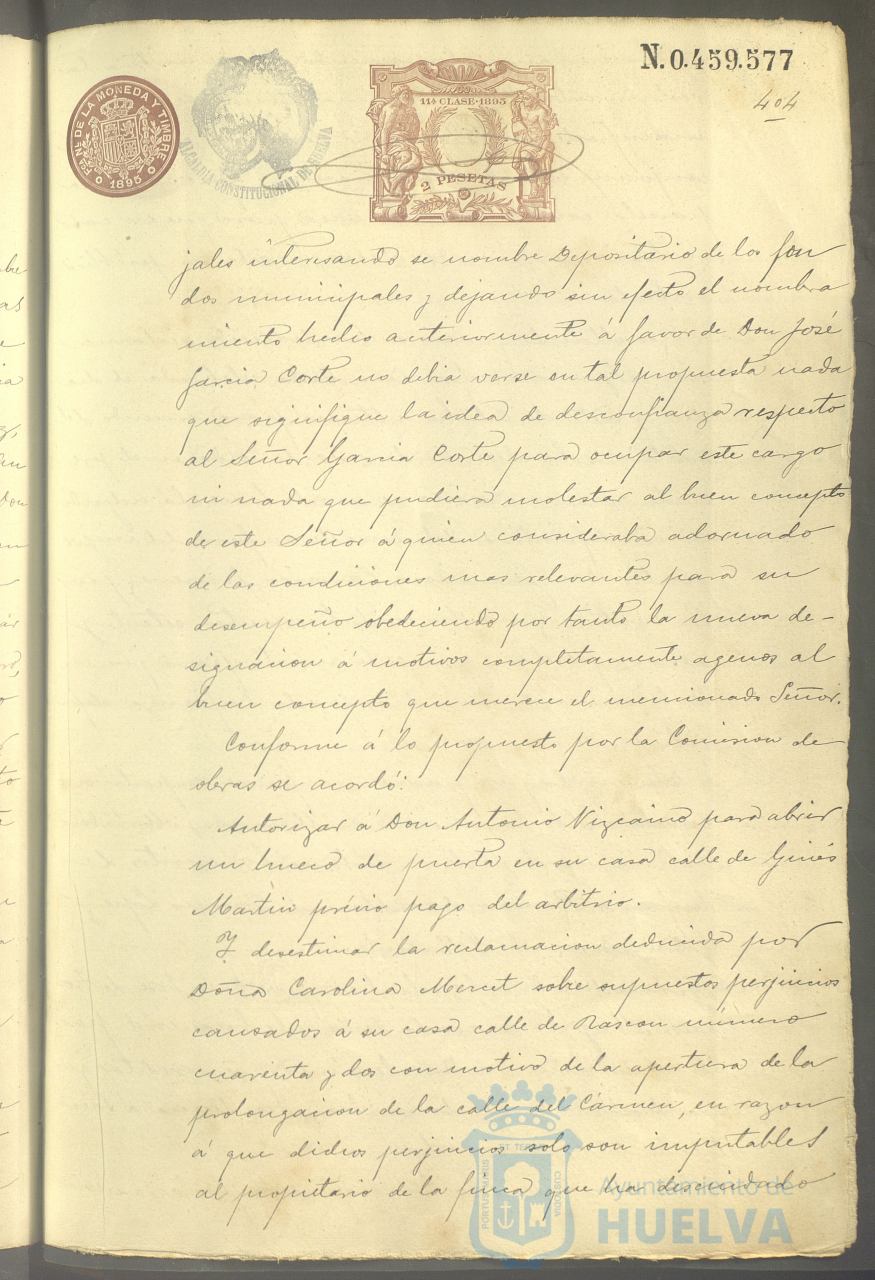 N.0.459.577
404
FCA. NAL. DE LA MONEDA Y TIMBRE
1895
ALCALDIA CONSTITUCIONAL DE HUELVA
11ª CLASE·1895
2 PESETAS
jales interesando se nombre Depositario de los fon
dos municipales y dejando sin efecto el nombra
miento hecho anteriormente á favor de Don José
Garcia Corte no debia verse en tal propuesta nada
que signifique la idea de desconfianza respecto
al Señor Garcia Corte para ocupar este cargo
ni nada que pudiera molestar al buen concepto
de este Señor á quien consideraba adornado
de las condiciones mas relevantes para su
desempeño obedeciendo por tanto la nueva de-
signacion á motivos completamente agenos al
buen concepto que merece el mencionado Señor.
Conforme á lo propuesto por la Comision de
obras se acordó:
Autorizar á Don Antonio Vizcaino para abrir
un hueco de puerta en su casa calle de Ginés
Martin prévio pago del arbitrio.
Y desestimar la reclamacion deducida por
Doña Carolina Mercet sobre supuestos perjuicios
causados á su casa calle de Rascon número
cuarenta y dos con motivo de la apertura de la
prolongacion de la calle del Cármen, en razon
á que dichos perjuicios solo son imputables
al propietario de la finca que ha descuidado
PORTUS MARIS ET TERRÆ CUSTODIA
Ayuntamiento de
HUELVA